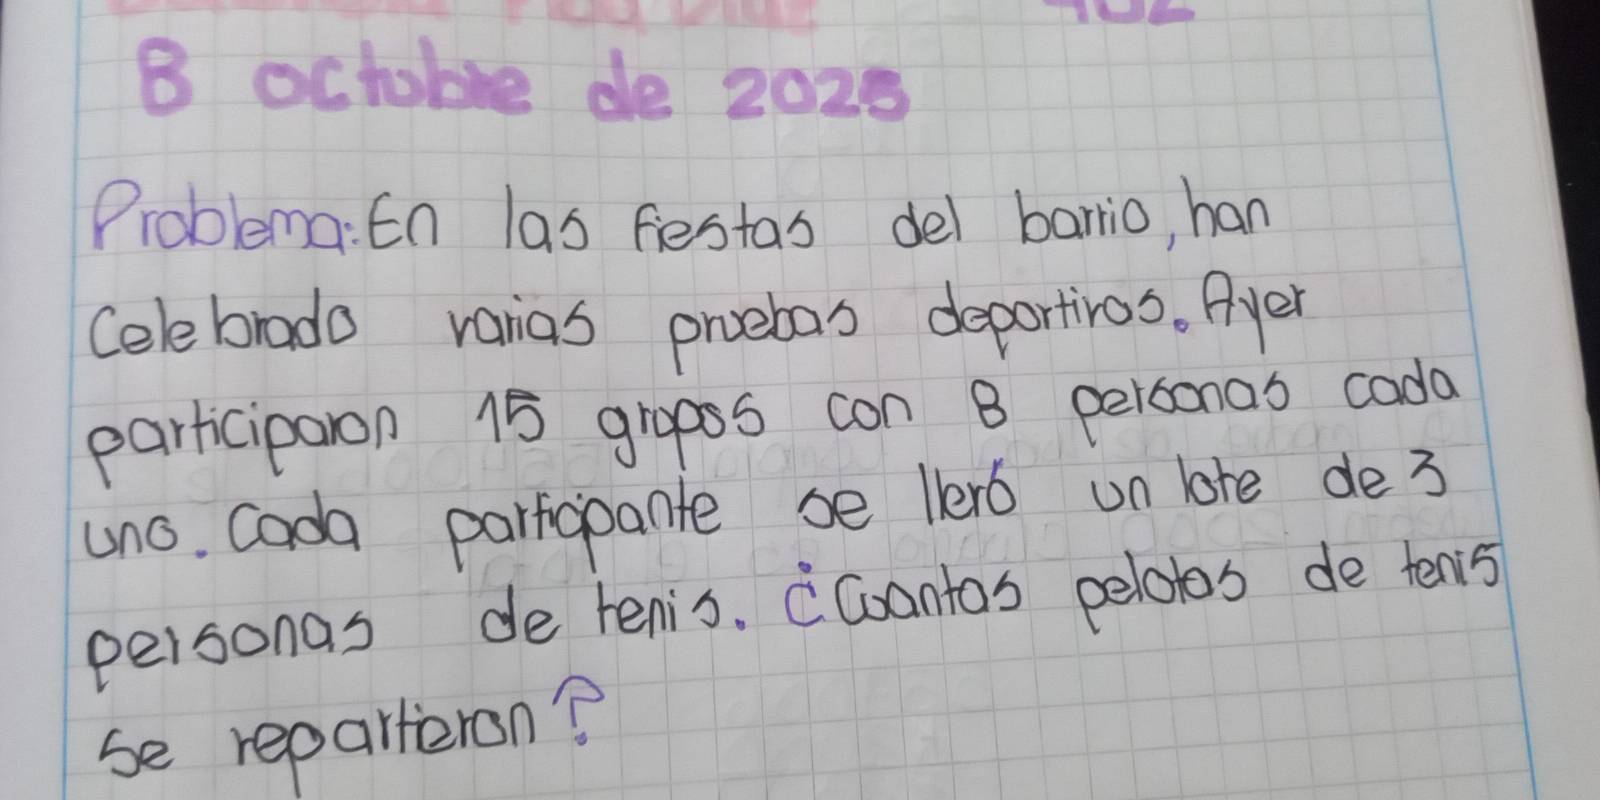 8 octubre de 2025
Problema: En las fiestas del barrio, han
Celebrado varias pruebas deportivas. Ayer
participaron 15 grupos con 8 personas cada
uno. Cada participante se llevó un lote de 3
personas de tenis. ¿Cuantas pelotas de tenis
se repartieron?